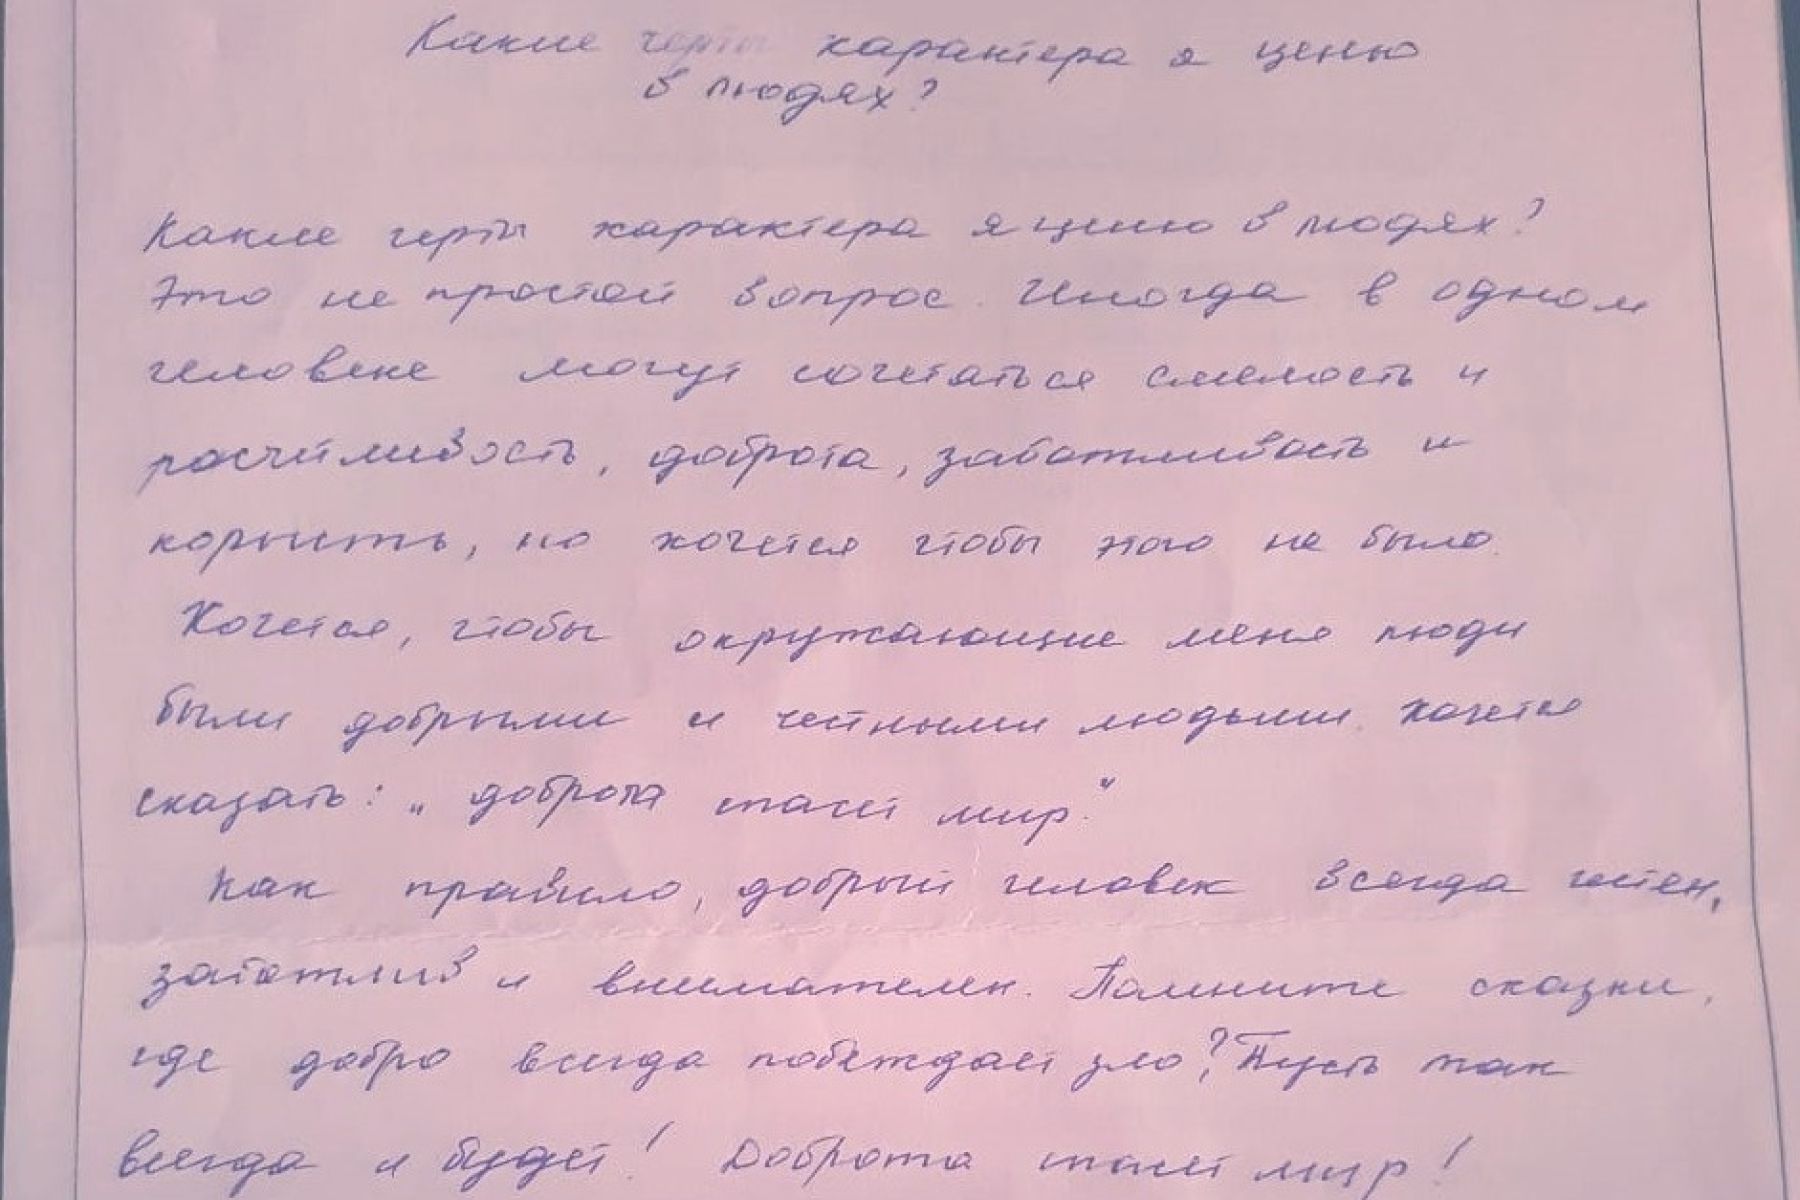 Какие черты характера я ценю
в людях?
Какие черты характера я ценю в людях?
Это не простой вопрос. Иногда в одном
человеке могут сочетаться смелость и
расчётливость, доброта, заботливость и
корысть, но хочется чтобы этого не было.
Хочется, чтобы окружающие меня люди
были добрыми и честными людьми. Хочется
сказать: „доброта спасёт мир."
Как правило, добрый человек всегда честен,
заботлив и внимателен. Помните сказки,
где добро всегда побеждает зло? Пусть так
всегда и будет! Доброта спасёт мир!